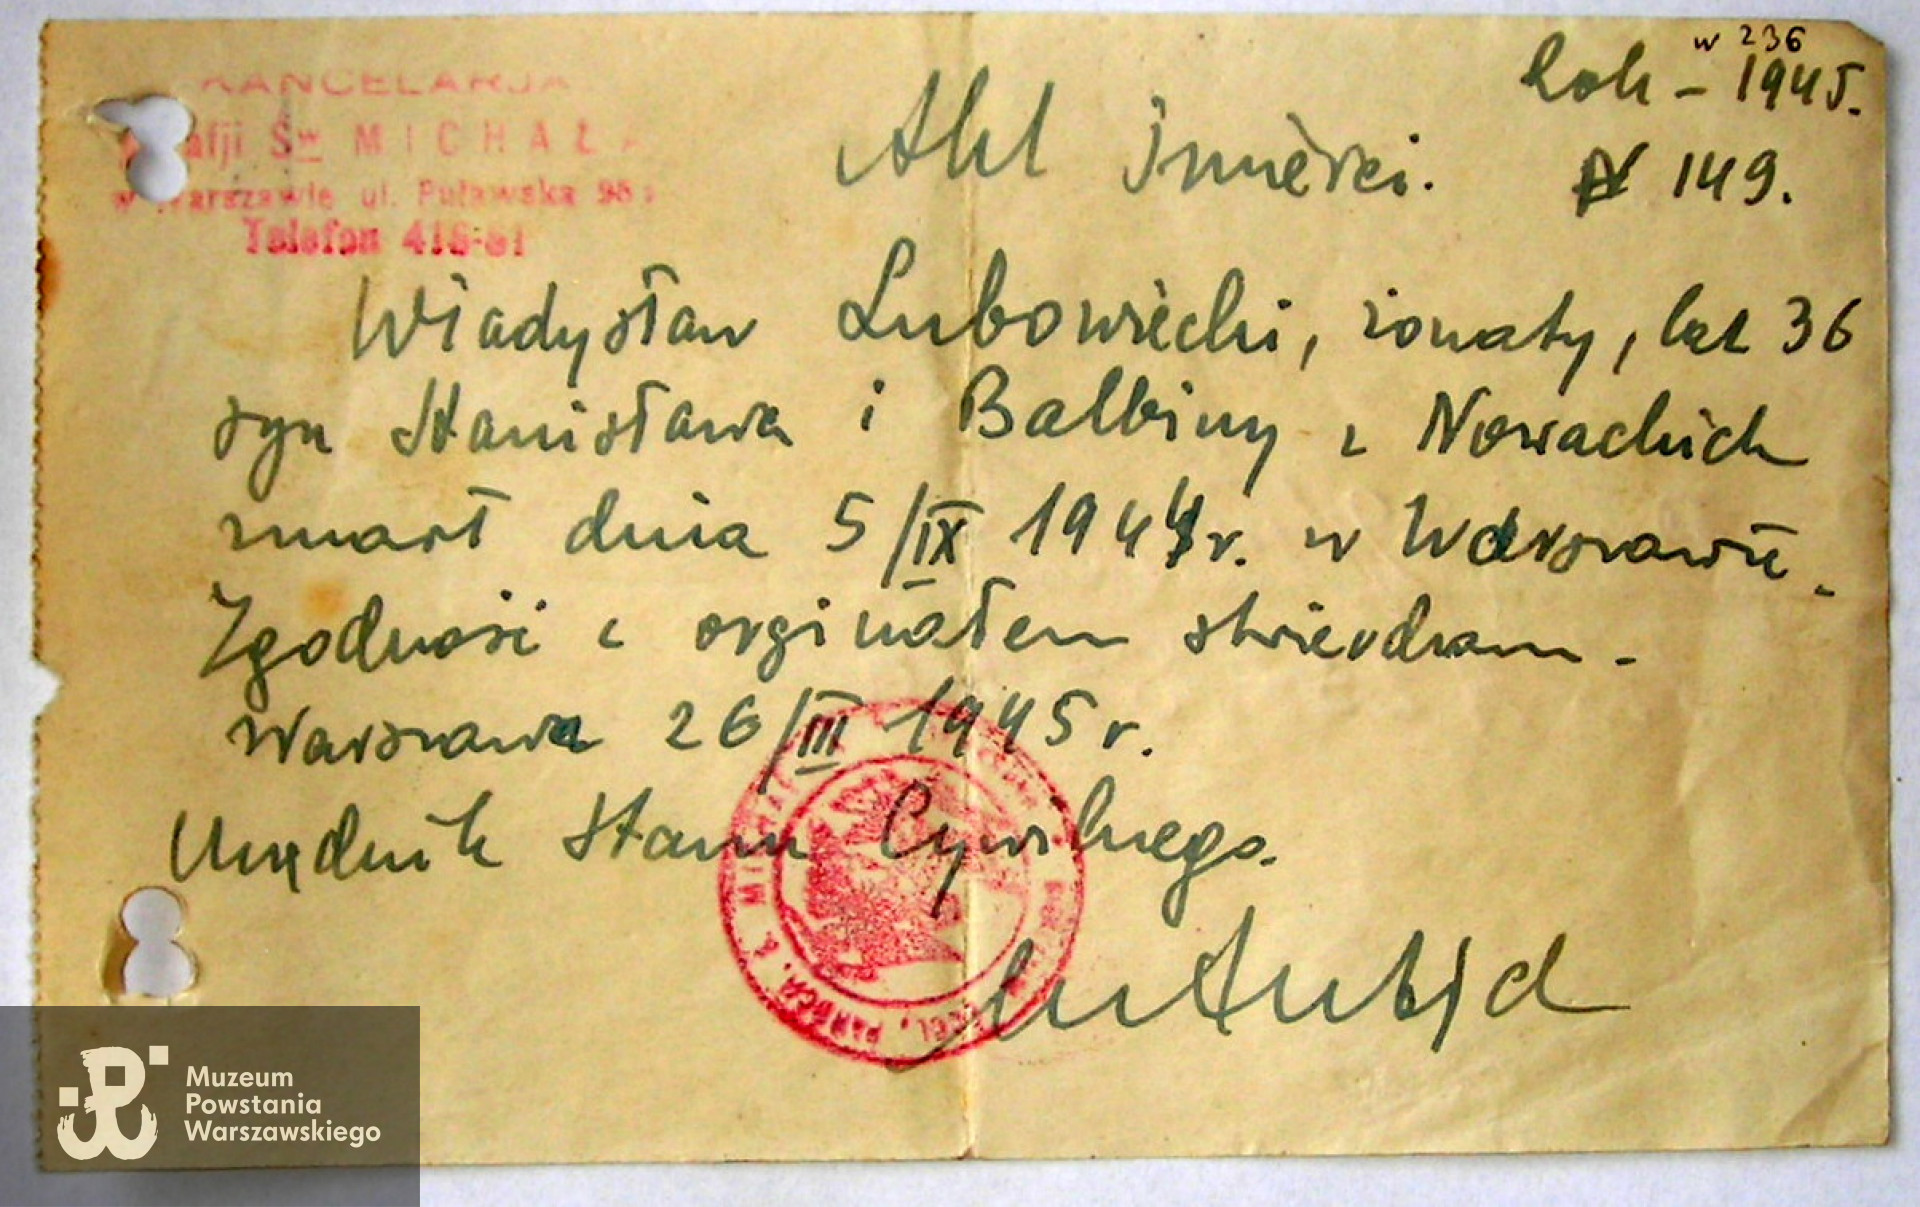 w 236
Rok - 1945.
KANCELARJA
Parafji Św MICHAŁA
w Warszawie ul. Puławska 95
Telefon 416-81
Akt śmierci. N 149.
Władysław Lubowiecki, żonaty, lat 36
syn Stanisława i Balbiny z Nowackich
zmarł dnia 5/IX 1944 r. w Warszawie.
Zgodność z orginałem stwierdzam.
Warszawa 26/III 1945 r.
Urzędnik Stanu Cywilnego.
Muzeum
Powstania
Warszawskiego